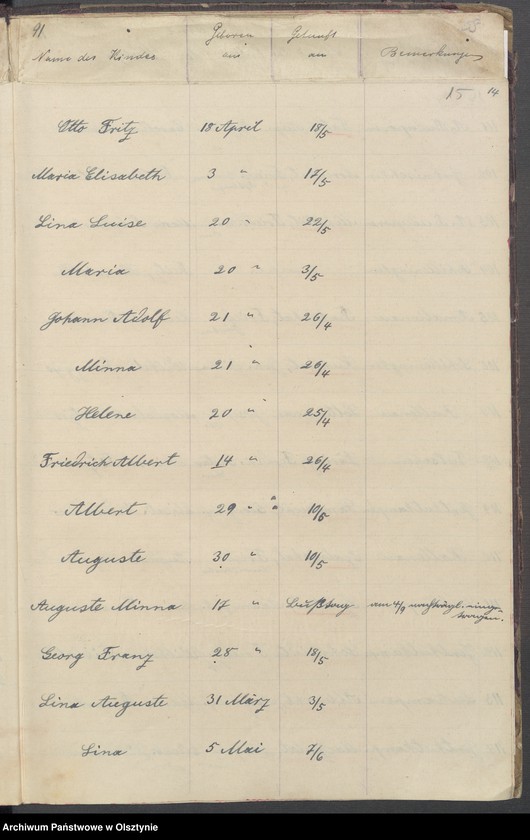 91.
Name des Kindes Geboren am Getauft am Bemerkungen
15 14
Otto Fritz 18 April 18/5
Maria Elisabeth 3 " 17/5
Lina Luise 20 " 22/5
Maria 20 " 3/5
Johann Adolf 21 " 26/4
Minna 21 " 26/4
Helene 20 " 25/4
Friedrich Albert 14 " 26/4
Albert 29 " 10/5
Auguste 30 " 10/5
Auguste Minna 17 " Bußtag am 4/9 nachträgl. einge-
tragen.
Georg Franz 28 " 18/5
Lina Auguste 31 März 3/5
Lina 5 Mai 7/6
Archiwum Państwowe w Olsztynie